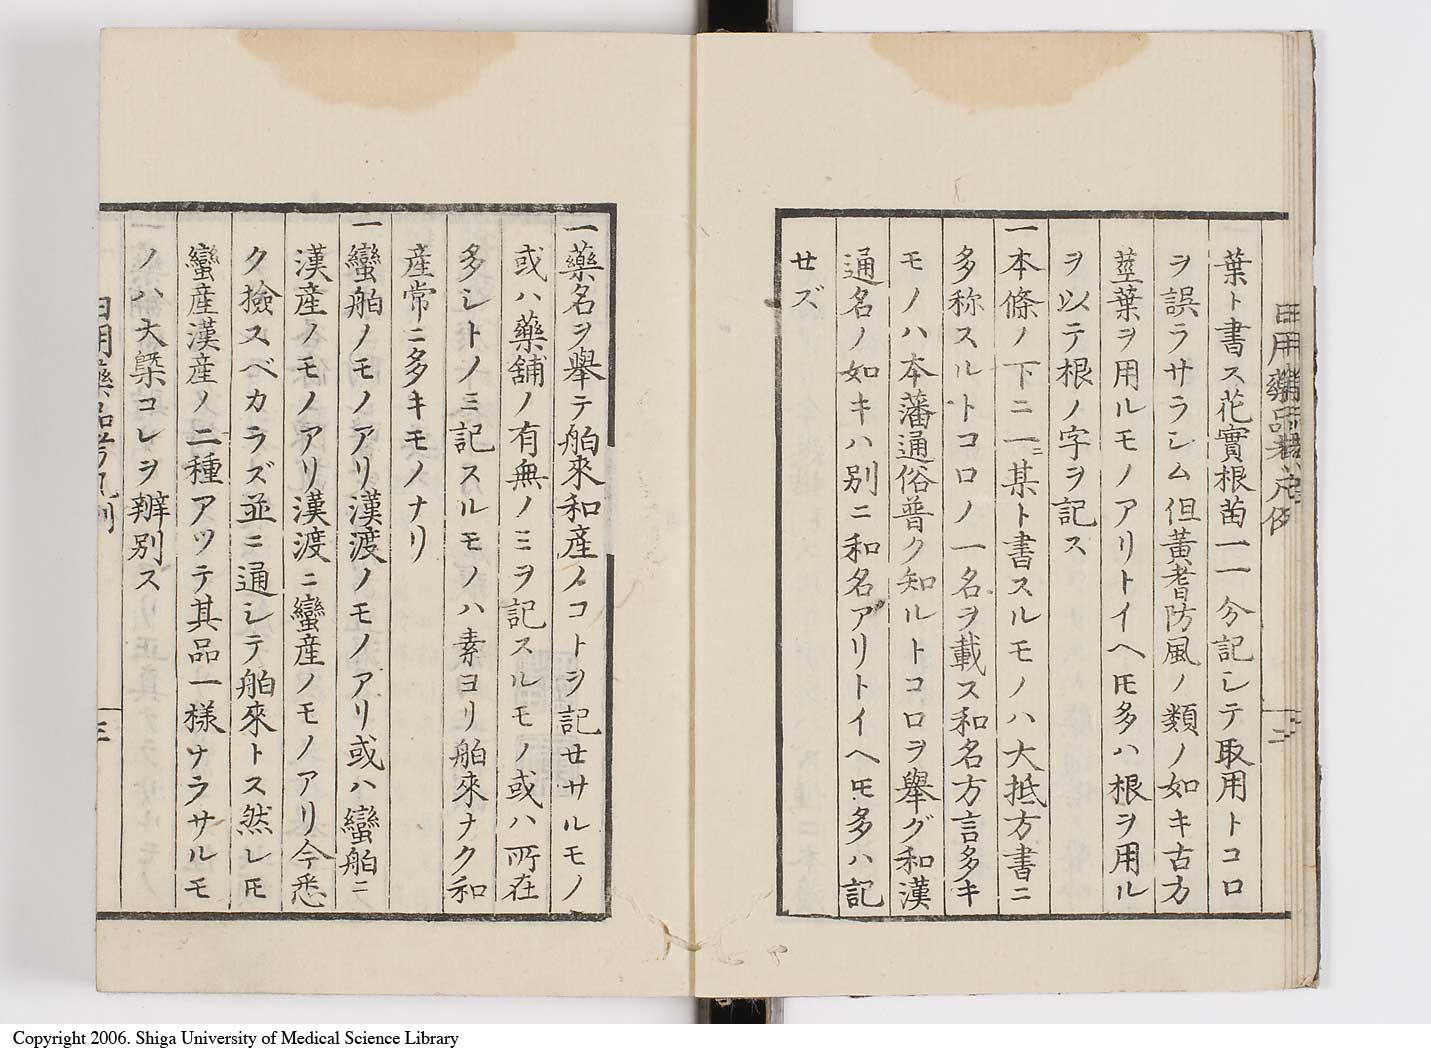 葉ト書ス花實根苗一一分記シテ取用トコロ
ヲ誤ラサラシム但黃耆防風ノ類ノ如キ古方
莖葉ヲ用ルモノアリトイヘ𪜈多ハ根ヲ用ル
ヲ以テ根ノ字ヲ記ス
一本條ノ下ニ一ニ某ト書スルモノハ大抵方書ニ
多称スルトコロノ一名ヲ載ス和名方言多キ
モノハ本藩通俗普ク知ルトコロヲ舉グ和漢
通名ノ如キハ別ニ和名アリトイヘ𪜈多ハ記
セズ
日用藥品考凡例
二
一藥名ヲ舉テ舶來和產ノコトヲ記セサルモノ
或ハ藥舖ノ有無ノミヲ記スルモノ或ハ所在
多シトノミ記スルモノハ素ヨリ舶來ナク和
產常ニ多キモノナリ
一蠻舶ノモノアリ漢渡ノモノアリ或ハ蠻舶ニ
漢產ノモノアリ漢渡ニ蠻產ノモノアリ今悉
ク撿スベカラズ並ニ通シテ舶來トス然レ𪜈
蠻產漢產ノ二種アツテ其品一樣ナラサルモ
ノハ大槩コレヲ辨別ス
日用藥品考凡例
三
Copyright 2006. Shiga University of Medical Science Library